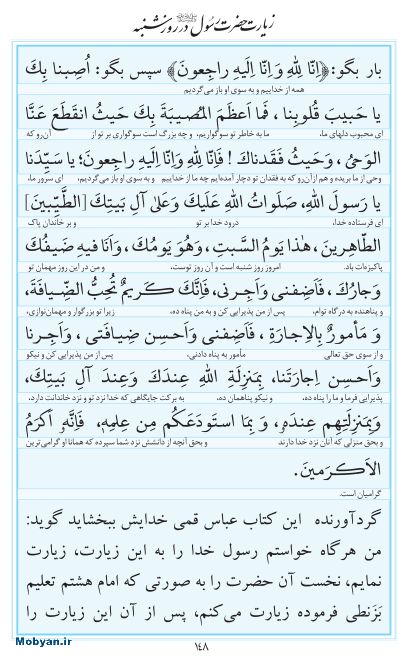 زیارت حضرت رسول ﷺ در روز شنبه
بار بگو: ﴿اِنّا لِلّٰهِ وَاِنّا اِلَیهِ راجِعونَ﴾ سپس بگو: اُصِبنا بِكَ
همه از خداییم و به سوی او باز می‌گردیم
یا حَبیبَ قُلوبِنا ، فَما اَعظَمَ المُصیبَةَ بِكَ حَیثُ انقَطَعَ عَنَّا
ای محبوب دلهای ما، ما به خاطر تو سوگواریم، و چه بزرگ است سوگواری بر تو از آن‌رو که
الوَحیُ، وَحَیثُ فَقَدناكَ ! فَاِنّا لِلّٰهِ وَاِنّا اِلَیهِ راجِعونَ؛ یا سَیِّدَنا
وحی از ما بریده و هم از آن‌رو که به فقدان تو دچار آمده‌ایم چه ما از خداییم و به سوی او باز می‌گردیم، ای سرور ما،
یا رَسولَ اللهِ، صَلَواتُ اللهِ عَلَیكَ وَعَلیٰ آلِ بَیتِكَ [الطَّیِّبینَ]
ای فرستاده خدا، درود خدا بر تو و بر خاندان پاک
الطّاهِرینَ، هٰذا یَومُ السَّبتِ، وَهُوَ یَومُكَ، وَاَنَا فیهِ ضَیفُكَ
پاکیزه‌ات باد. امروز روز شنبه است و آن روز توست، و من در این روز مهمان تو
وَجارُكَ، فَاَضِفنی وَاَجِرنی، فَاِنَّكَ كَریمٌ تُحِبُّ الضِّیافَةَ،
و پناهنده به درگاه توام، پس از من پذیرایی کن و به من پناه ده، زیرا تو بزرگوار و مهمان‌نوازی،
وَ مَأمورٌ بِالاِجارَةِ ، فَاَضِفنی وَاَحسِن ضِیافَتی ، وَاَجِرنا
و از سوی حق تعالی مأمور به پناه دادنی، پس از من پذیرایی کن و نیکو
وَاَحسِن اِجارَتَنا، بِمَنزِلَةِ اللهِ عِندَكَ وَعِندَ آلِ بَیتِكَ،
پذیرایی فرما و ما را پناه ده، و نیکو پناهمان ده، به برکت جایگاهی که خدا نزد تو و نزد خاندانت دارد،
وَبِمَنزِلَتِهِم عِندَهُ، وَ بِمَا استَودَعَكُم مِن عِلمِهِ، فَاِنَّهُ اَكرَمُ
و بحق منزلی که آنان نزد خدا دارند و بحق آنچه از دانشش نزد شما سپرده که همانا او گرامی‌ترین
الاَكرَمینَ.
گرامیان است.
گردآورنده این کتاب عباس قمی خدایش ببخشاید گوید:
من هرگاه خواستم رسول خدا را به این زیارت، زیارت
نمایم، نخست آن حضرت را به صورتی که امام هشتم تعلیم
بَزَنطی فرموده زیارت می‌کنم، پس از آن این زیارت را
Mobyan.ir
۱۴۸